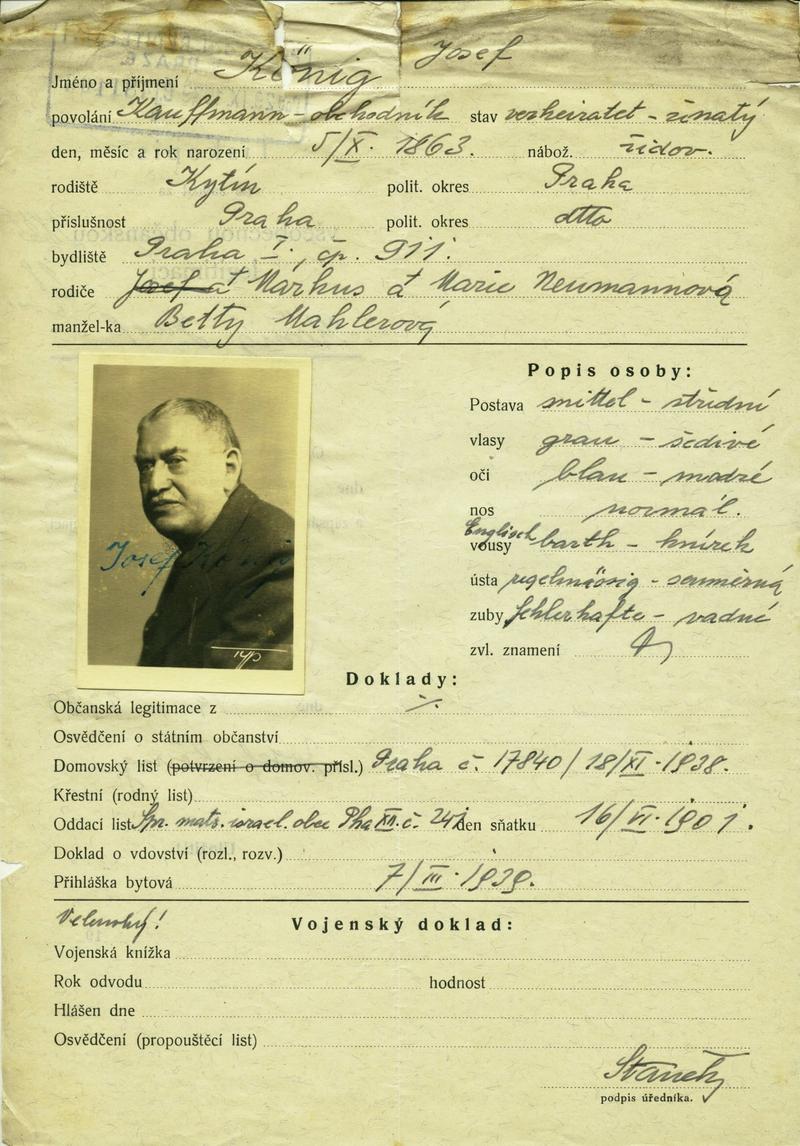 Jméno a příjmení König Josef
povolání Kauffmann - obchodník stav verheiratet - ženatý
den, měsíc a rok narození 5/X. 1863. nábož. židov.
rodiště Kytín polit. okres Praha
příslušnost Praha polit. okres dtto
bydliště Praha I., čp. 911.
rodiče Josef a Markus a Marie Neumannová
manžel-ka Betty Mahlerová
Popis osoby:
Postava mittel - střední
vlasy grau - šedivé
oči blau - modré
nos normál.
Englisch
vousy barth - knírek
ústa regelmässig - souměrná
zuby fehlerhafte - vadné
zvl. znamení
Josef König
Doklady:
Občanská legitimace z
Osvědčení o státním občanství
Domovský list (potvrzení o domov. přísl.) Praha č. 17840/18/XI. 1938.
Křestní (rodný list)
Oddací list Spr. matr. israel. obce Pha XII. č. 241 den sňatku 16/VI. 1901.
Doklad o vdovství (rozl., rozv.)
Přihláška bytová 7/III. 1939.
Vojenský doklad:
Vojenská knížka
Rok odvodu hodnost
Hlášen dne
Osvědčení (propouštěcí list)
podpis úředníka.